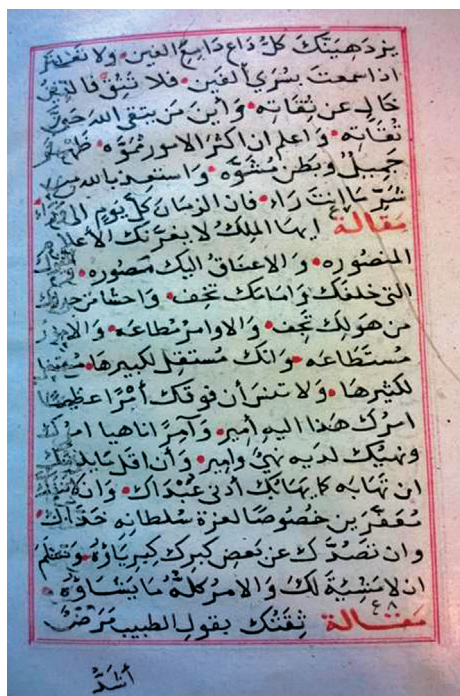 يزدهينك كل داع دامع العين ولا تغتر
اذا سمعت بسرى القين فلا تثق فالتقى
خال عن ثقاته واين من يتقى الله حق
تقاته واعلم ان اكثر الامور مموه ظهر
جميل وبطن مشوه واستعذ بالله من
شر ما انت راء فان الزمان كل يوم الى وراء
مقالة ٤٧ ايها الملك لا يغرنك الأعلام
المنصوره والاعناق اليك مصوره
التى خلفك وامامك تخف واحشا من حولك
من هولك تجف والاوامر مطاعه والامور
مستطاعه وانك مستقل لكبيرها
لكثيرها ولا تنس أن فوقك أمرا عظيما
امرك هذا اليه أمير وآمرا ناهيا امرك
ونهيك لديه نهى وامير وأن اقل ما يلزمك
ان تهابه كما يهابك أدنى عبداك وان
معفرين خصوصا لعزة سلطانه خداك
وان تصدك عن بعض كبرك كبرياؤه وتعلم
ان لا مشية لك والامر كله ما يشاؤه
مقالة ٤٨ ثقتك بقول الطبيب مرض
أشد